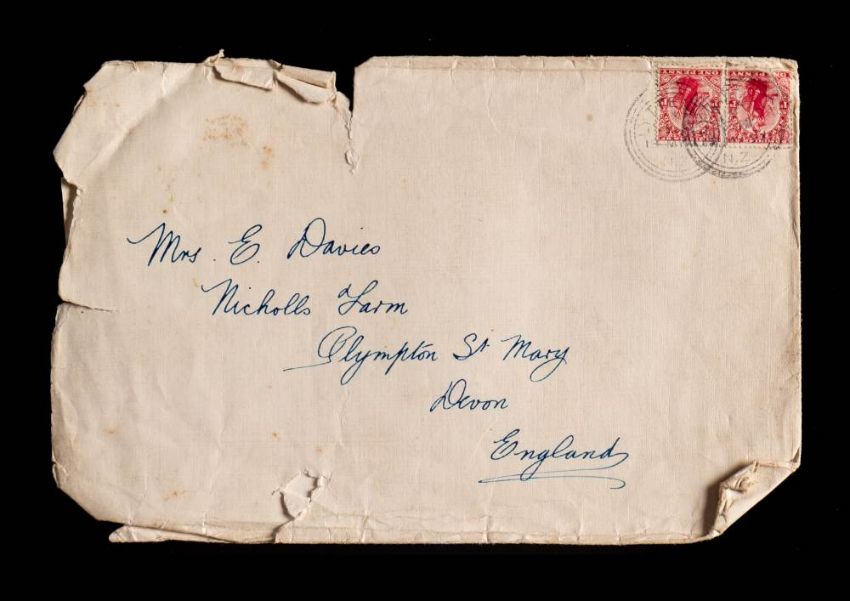 Mrs. E. Davies
Nicholls Farm
Plympton St Mary
Devon
England
N.Z